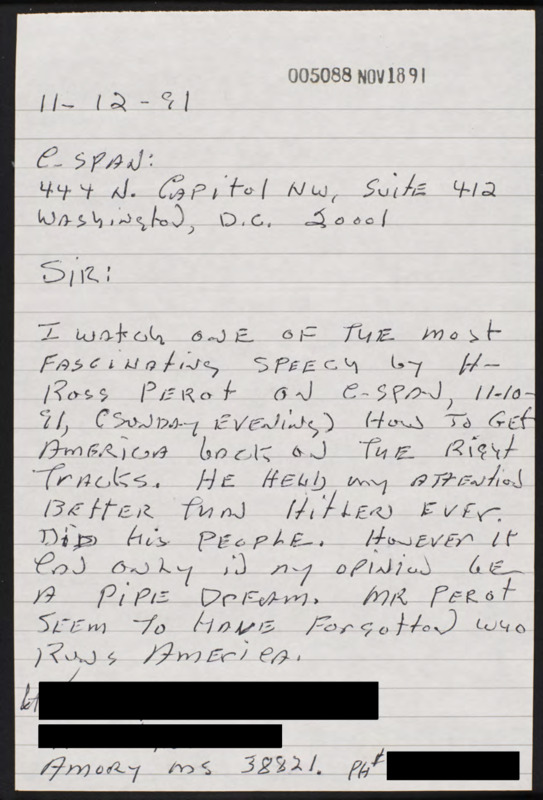 005088 NOV1891
11-12-91
C-SPAN:
444 N. CAPitol NW, SuitE 412
WAShington, D.C. 20001
SIR:
I watch ONE OF THE most
FASCINAting SPEECh by H-
Ross PEROt ON C-SPAN, 11-10-
91, (SUNDAY EVENING) HOW TO GET
AMERICA back ON THE Right
TRACKS. HE HELD my ATTENTION
BETTER THAN HITLER EVER
DID His PEOPLE. HOWEVER It
CAN ONly in my OPINION BE
A PIPE DREAM. MR PEROt
SEEM TO HAVE FORgottoN WHO
RUNS AMERICA.
AMORY MS 38821. PH#